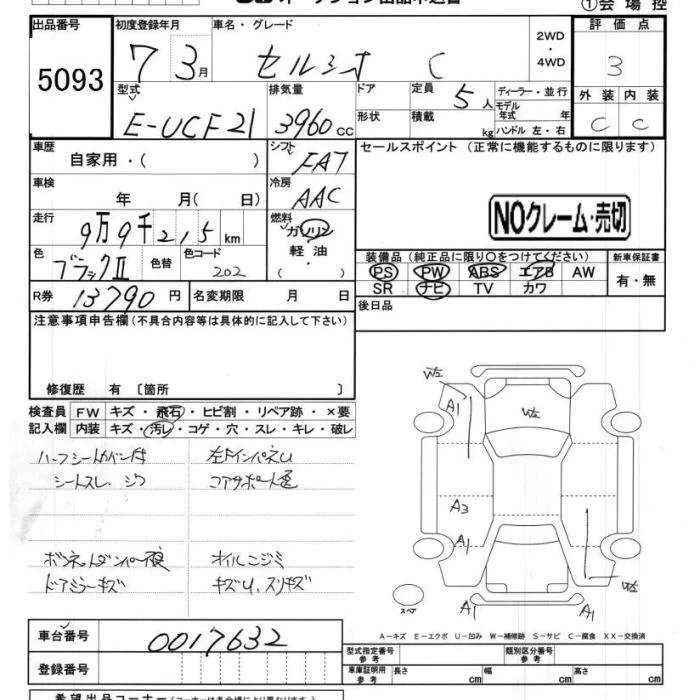 ①会場控
出品番号 初度登録年月 車名・グレード 2WD・4WD 評価点
5093 7 3月 セルシオ C 3
型式 排気量 ドア 定員 5人 ディーラー・並行 外装 内装
E-UCF21 3960cc 形状 積載 kg モデル年式 年 C C
ハンドル 左・右
車歴 シフト セールスポイント (正常に機能するものに限ります)
自家用・( ) FA7
車検 冷房
年 月( 日) AAC
NOクレーム・売切
走行 燃料
9万9千215km ガソリン
軽油
・
( )
色 ブラックII 色替 色コード 202
装備品(純正品に限り○をつけてください) 新車保証書
PS PW ABS エアB AW 有・無
SR ナビ TV カワ
R券 13790円 名変期限 月 日
後日品
注意事項申告欄(不具合内容等は具体的に記入して下さい)
修復歴 有 〔箇所 〕
検査員 FW キズ・飛石・ヒビ割・リペア跡・×要
記入欄 内装 キズ・汚レ・コゲ・穴・スレ・キレ・破レ
シートスレ、シワ
ボンネットダンパー不良 オイルニジミ
ドアミラーキズ キズU、スリキズ
W2
A1
W2
A3
A1
W2
スペア
A1
A1
A-キズ E-エクボ U-凹み W-補修跡 S-サビ C-腐食 XX-交換済
車台番号 0017632
型式指定番号 参考 類別区分番号 参考
登録番号
車庫証明用 参考 長さ cm 幅 cm 高さ cm
希望出品コーナー